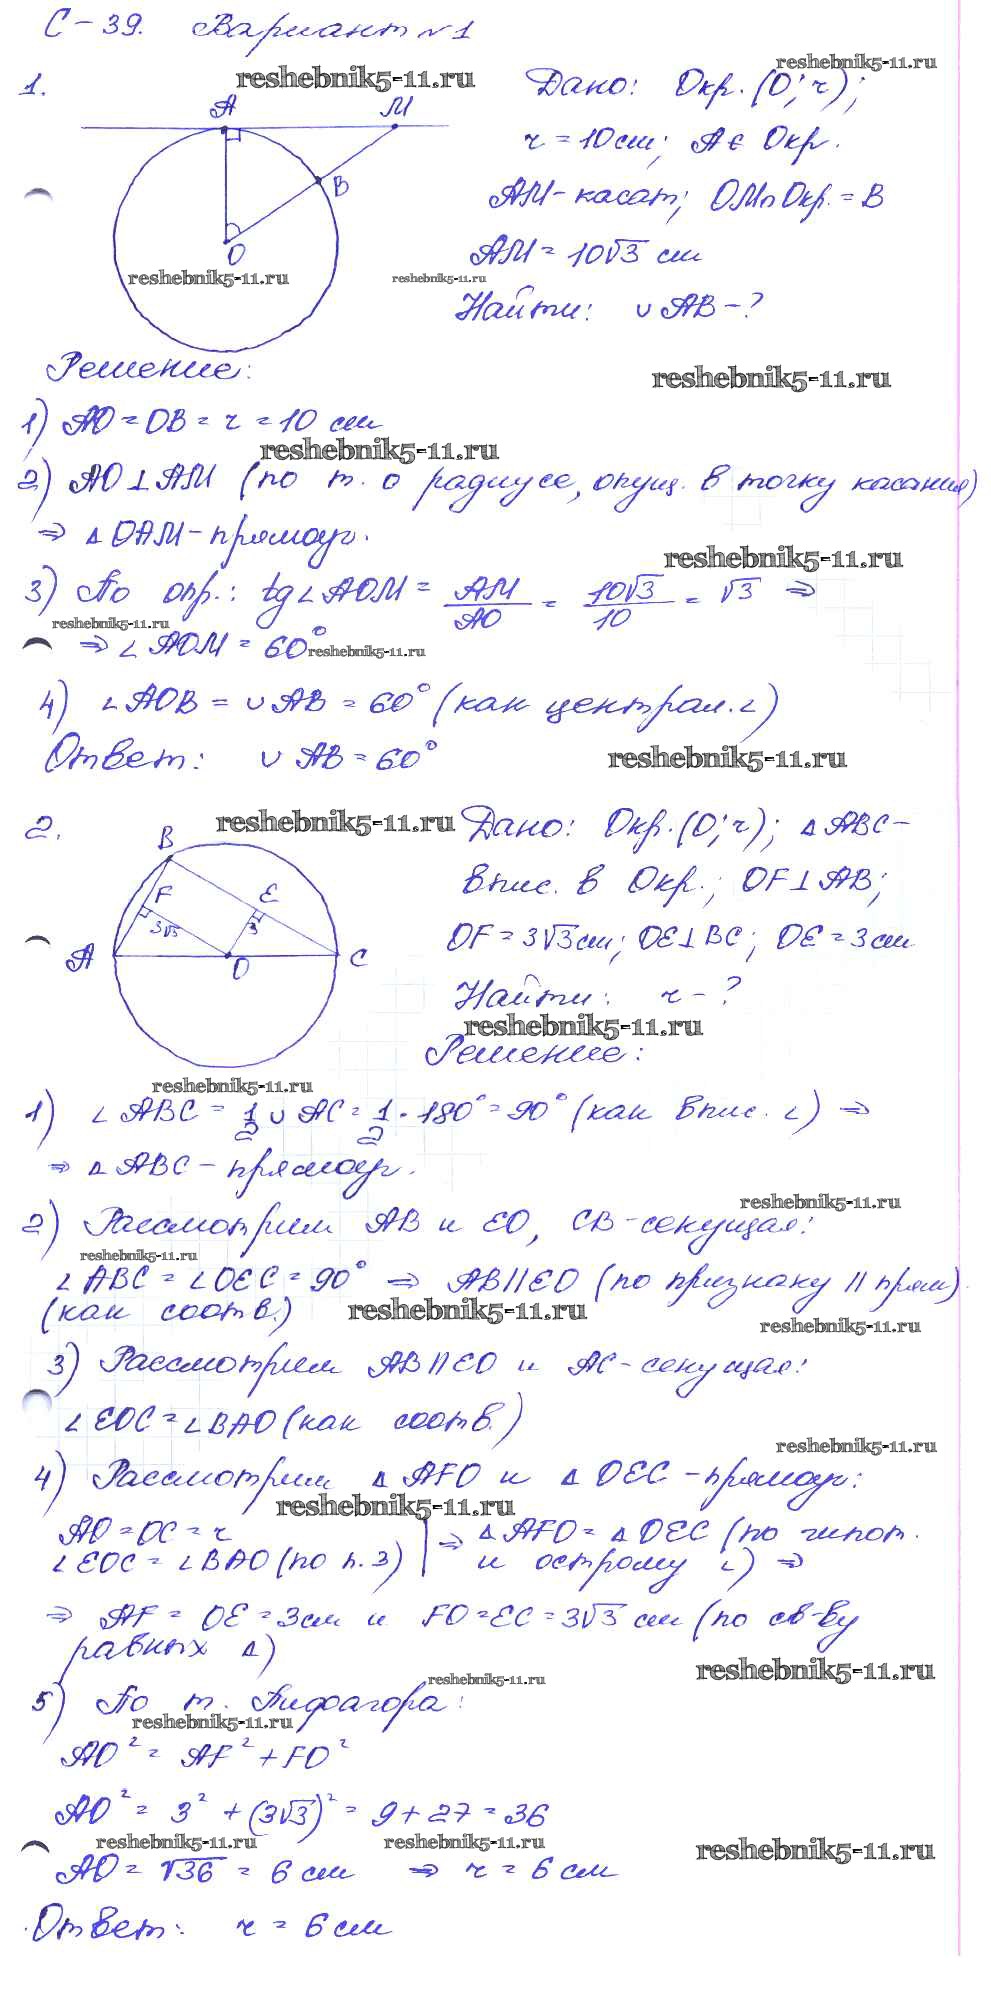 С-39. Вариант №1
reshebnik5-11.ru
reshebnik5-11.ru
1.
A
M
B
O
reshebnik5-11.ru
reshebnik5-11.ru
Дано: Окр.(O; r);
r = 10 см; A ∈ Окр.
AM - касат; OM ∩ Окр. = B
AM = 10√3 см
Найти: ∪ AB - ?
Решение:
reshebnik5-11.ru
1) AO = OB = r = 10 см
reshebnik5-11.ru
2) AO ⊥ AM (по т. о радиусе, опущ. в точку касания)
⇒ △ OAM - прямоуг.
reshebnik5-11.ru
3) По опр.: tg ∠ AOM = AM/AO = 10√3/10 = √3 ⇒
reshebnik5-11.ru
⇒ ∠ AOM = 60°
reshebnik5-11.ru
4) ∠ AOB = ∪ AB = 60° (как централ. ∠)
Ответ: ∪ AB = 60°
reshebnik5-11.ru
2.
reshebnik5-11.ru
B
F
E
3√3
3
A
O
C
Дано: Окр.(O; r); △ ABC -
впис. в Окр.; OF ⊥ AB;
OF = 3√3 см; OE ⊥ BC; OE = 3 см
Найти: r - ?
reshebnik5-11.ru
Решение:
reshebnik5-11.ru
1) ∠ ABC = 1/2 ∪ AC = 1/2 · 180° = 90° (как впис. ∠) ⇒
⇒ △ ABC - прямоуг.
reshebnik5-11.ru
2) Рассмотрим AB и EO, CB - секущая:
reshebnik5-11.ru
∠ ABC = ∠ OEC = 90° ⇒ AB || EO (по признаку || прям)
(как соотв.)
reshebnik5-11.ru
reshebnik5-11.ru
3) Рассмотрим AB || EO и AC - секущая:
∠ EOC = ∠ BAO (как соотв.)
reshebnik5-11.ru
4) Рассмотрим △ AFO и △ OEC - прямоуг:
reshebnik5-11.ru
AO = OC = r
∠ EOC = ∠ BAO (по п. 3)
⇒ △ AFO = △ OEC (по гипот.
и острому ∠) ⇒
⇒ AF = OE = 3 см и FO = EC = 3√3 см (по св-ву
равных △)
reshebnik5-11.ru
reshebnik5-11.ru
5) По т. Пифагора:
reshebnik5-11.ru
AO² = AF² + FO²
AO² = 3² + (3√3)² = 9 + 27 = 36
reshebnik5-11.ru
reshebnik5-11.ru
reshebnik5-11.ru
AO = √36 = 6 см ⇒ r = 6 см
Ответ: r = 6 см